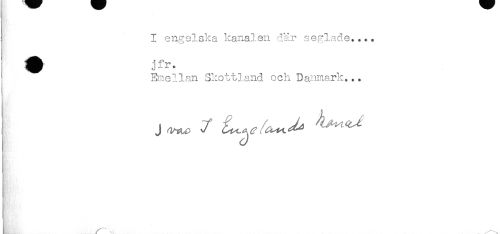 I engelska kanalen där seglade....
jfr.
Emellan Skottland och Danmark...
J vas I Engelands kanal